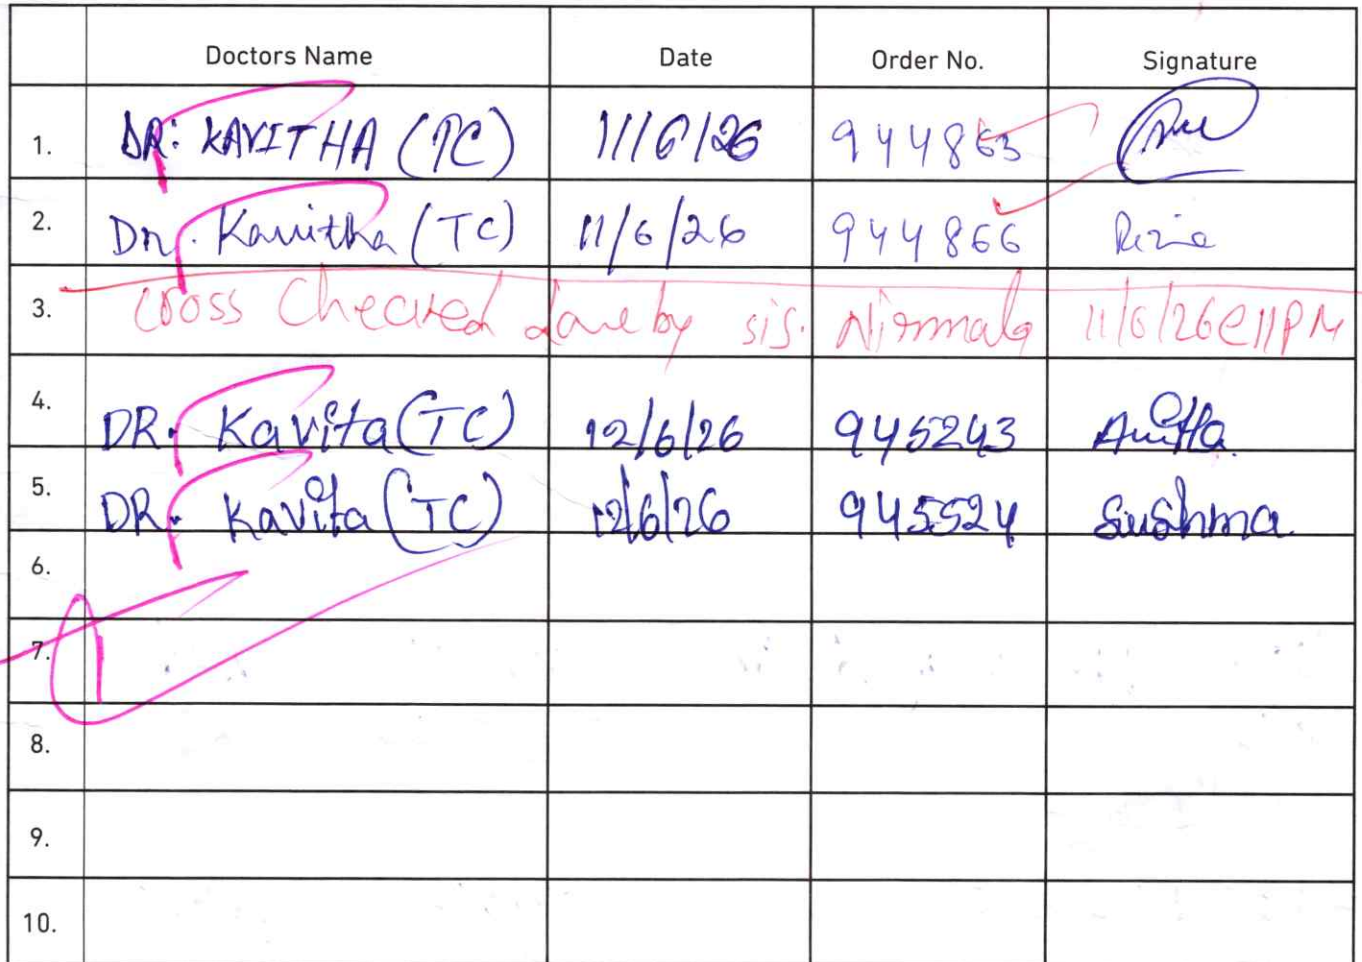 Doctors Name Date Order No. Signature
1. DR: KAVITHA (TC) 11/6/26 944863
2. Dr. Kavitha (TC) 11/6/26 944866
3. Cross Checked done by sis. Nirmala 11/6/26@11PM
4. DR. Kavita (TC) 12/6/26 945243
5. DR. Kavita (TC) 12/6/26 945524 Sushma.
6.
7.
8.
9.
10.